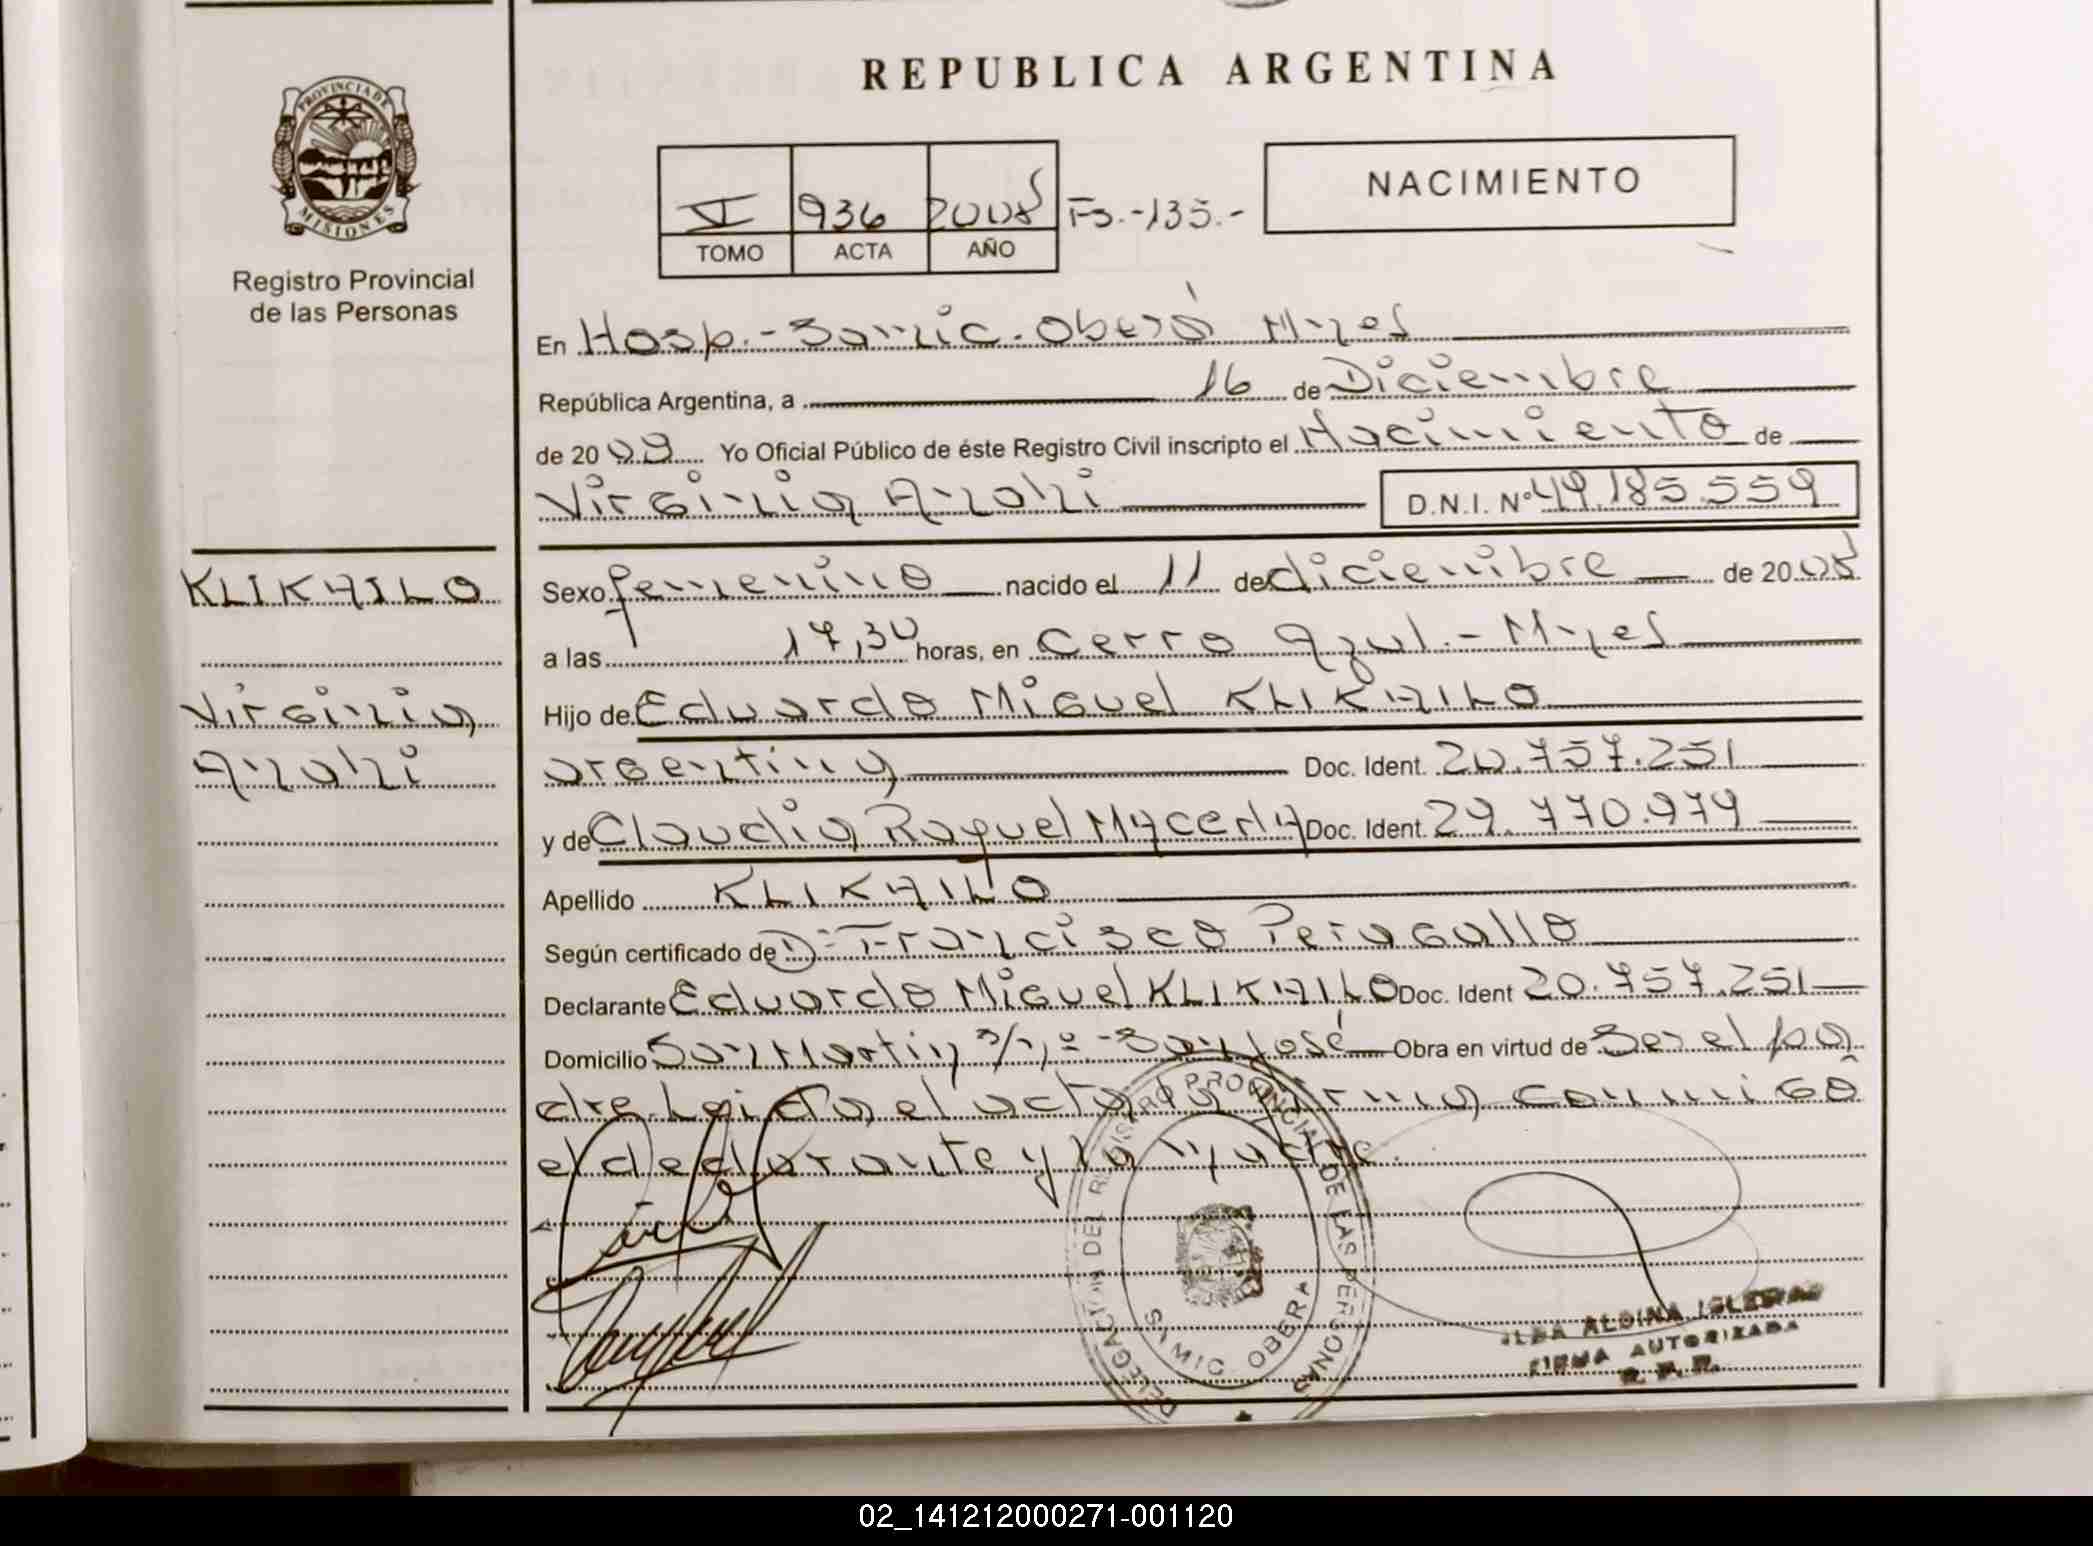 REPUBLICA ARGENTINA
PROVINCIA DE MISIONES
Registro Provincial
de las Personas
VI 936 2008 Fs.-135.-
TOMO ACTA AÑO
NACIMIENTO
En Hosp.-Samic. Oberá Mnes
República Argentina, a 16 de Diciembre
de 20 Yo Oficial Público de éste Registro Civil inscripto el Nacimiento de
Virginia Anahi D.N.I. Nº 49.185.559
KLIKAILO
Virginia
Anahi
Sexo femenino nacido el 11 de diciembre de 2008
a las 17,30 horas, en Cerro Azul.- Mnes
Hijo de Eduardo Miguel KLIKAILO
argentina Doc. Ident. 20.757.251
y de Claudia Raquel Doc. Ident. 29.770.979
Apellido KLIKAILO
Según certificado de D: Francisco Peragallo
Declarante Eduardo Miguel KLIKAILO Doc. Ident 20.757.251
Domicilio San Martin s/nº-San José Obra en virtud de Ser el pa
dre Leida el acta la firma conmigo
el declarante y la madre.
DELEGACION DEL REGISTRO PROVINCIAL DE LAS PERSONAS
SAMIC OBERA
ALDINA IGLESIAS
FIRMA AUTORIZADA
02_141212000271-001120